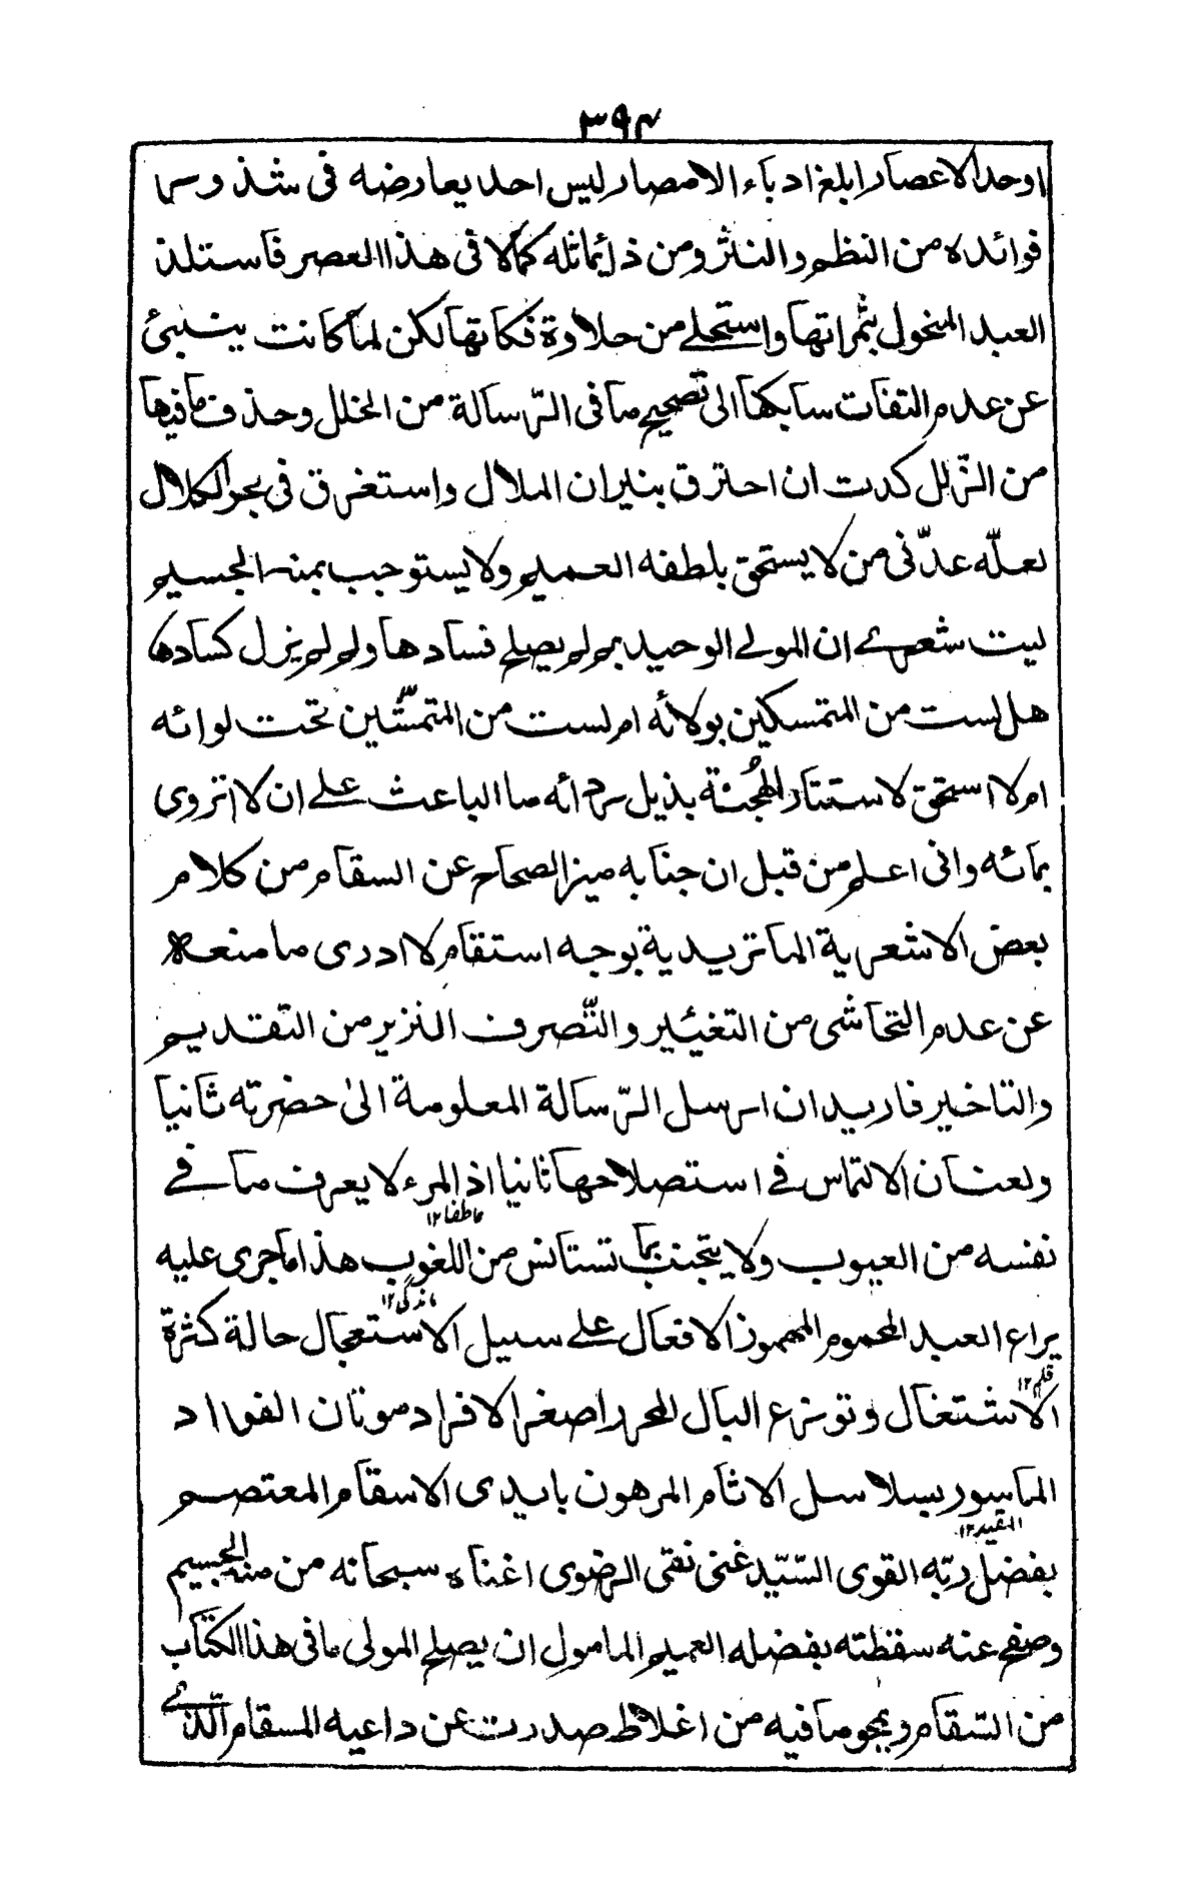 ۳۹۴
اوحد الاعصار ابلغ ادباء الامصار ليس احد يعارضه فى شذور سما
فوائده من النظم والنثر ومن ذا يماثله كمالا فى هذا العصر فاستلذ
العبد المنحول بثمراتها واستحلے من حلاوة فكاتها لكن لما كانت ينبئ
عن عدم التفات سابكها الى تصحيح ما فى الرّسالة من الخلل وحذف ما فيها
من الزّلل كدت ان احترق بنيران الملال واستغرق فى بحر الكلال
لعلّه عدّنى من لا يستحق بلطفه العميم ولا يستوجب بمنه الجسيم
ليت شعرے ان المولے الوحيد بم لم يصلح فسادها ولم لم يزل كسادها
هل لست من المتمسكين بولائه ام لست من المتمشّين تحت لوائه
ام لا استحق لاستتار الهجنة بذيل ردائه ما الباعث علے ان لا اتروى
بمائه وانى اعلم من قبل ان جنابه ميز الصحاح عن السقام من كلام
بعض الاشعرية الماتريدية بوجه استقام لا ادرى ما منعه
عن عدم التحاشى من التغيير والتّصرف النزير من التقديم
والتاخير فاريد ان ارسل الرّسالة المعلومة الىٰ حضرته ثانيا
ولعنان الالتماس فے استصلاحها ثانيا اذ المرء لا يعرف ما فے
عاطفا ۱۲
نفسه من العيوب ولا يتجنب بما تستانس من اللغوب هذا ما جرى عليه
ماندگى ۱۲
يراع العبد المحموم المهموز الافعال علے سبيل الاستعجال حالة كثرة
قلم ۱۲
الاشتغال وتوزع البال المحرر اصغر الافراد موتان الفواد
الماسور بسلاسل الاثام المرهون بايدى الاسقام المعتصم
المقيد ۱۲
بفضل ربّه القوى السّيّد غنى نقى الرضوى اغناه سبحانه من منه الجسيم
وصفح عنه سقطته بفضله العميم المامول ان يصلح المولى ما فى هذا الكتاب
من السّقام ويمحو ما فيه من اغلاط صدرت عن داعيه المسقام الّذے